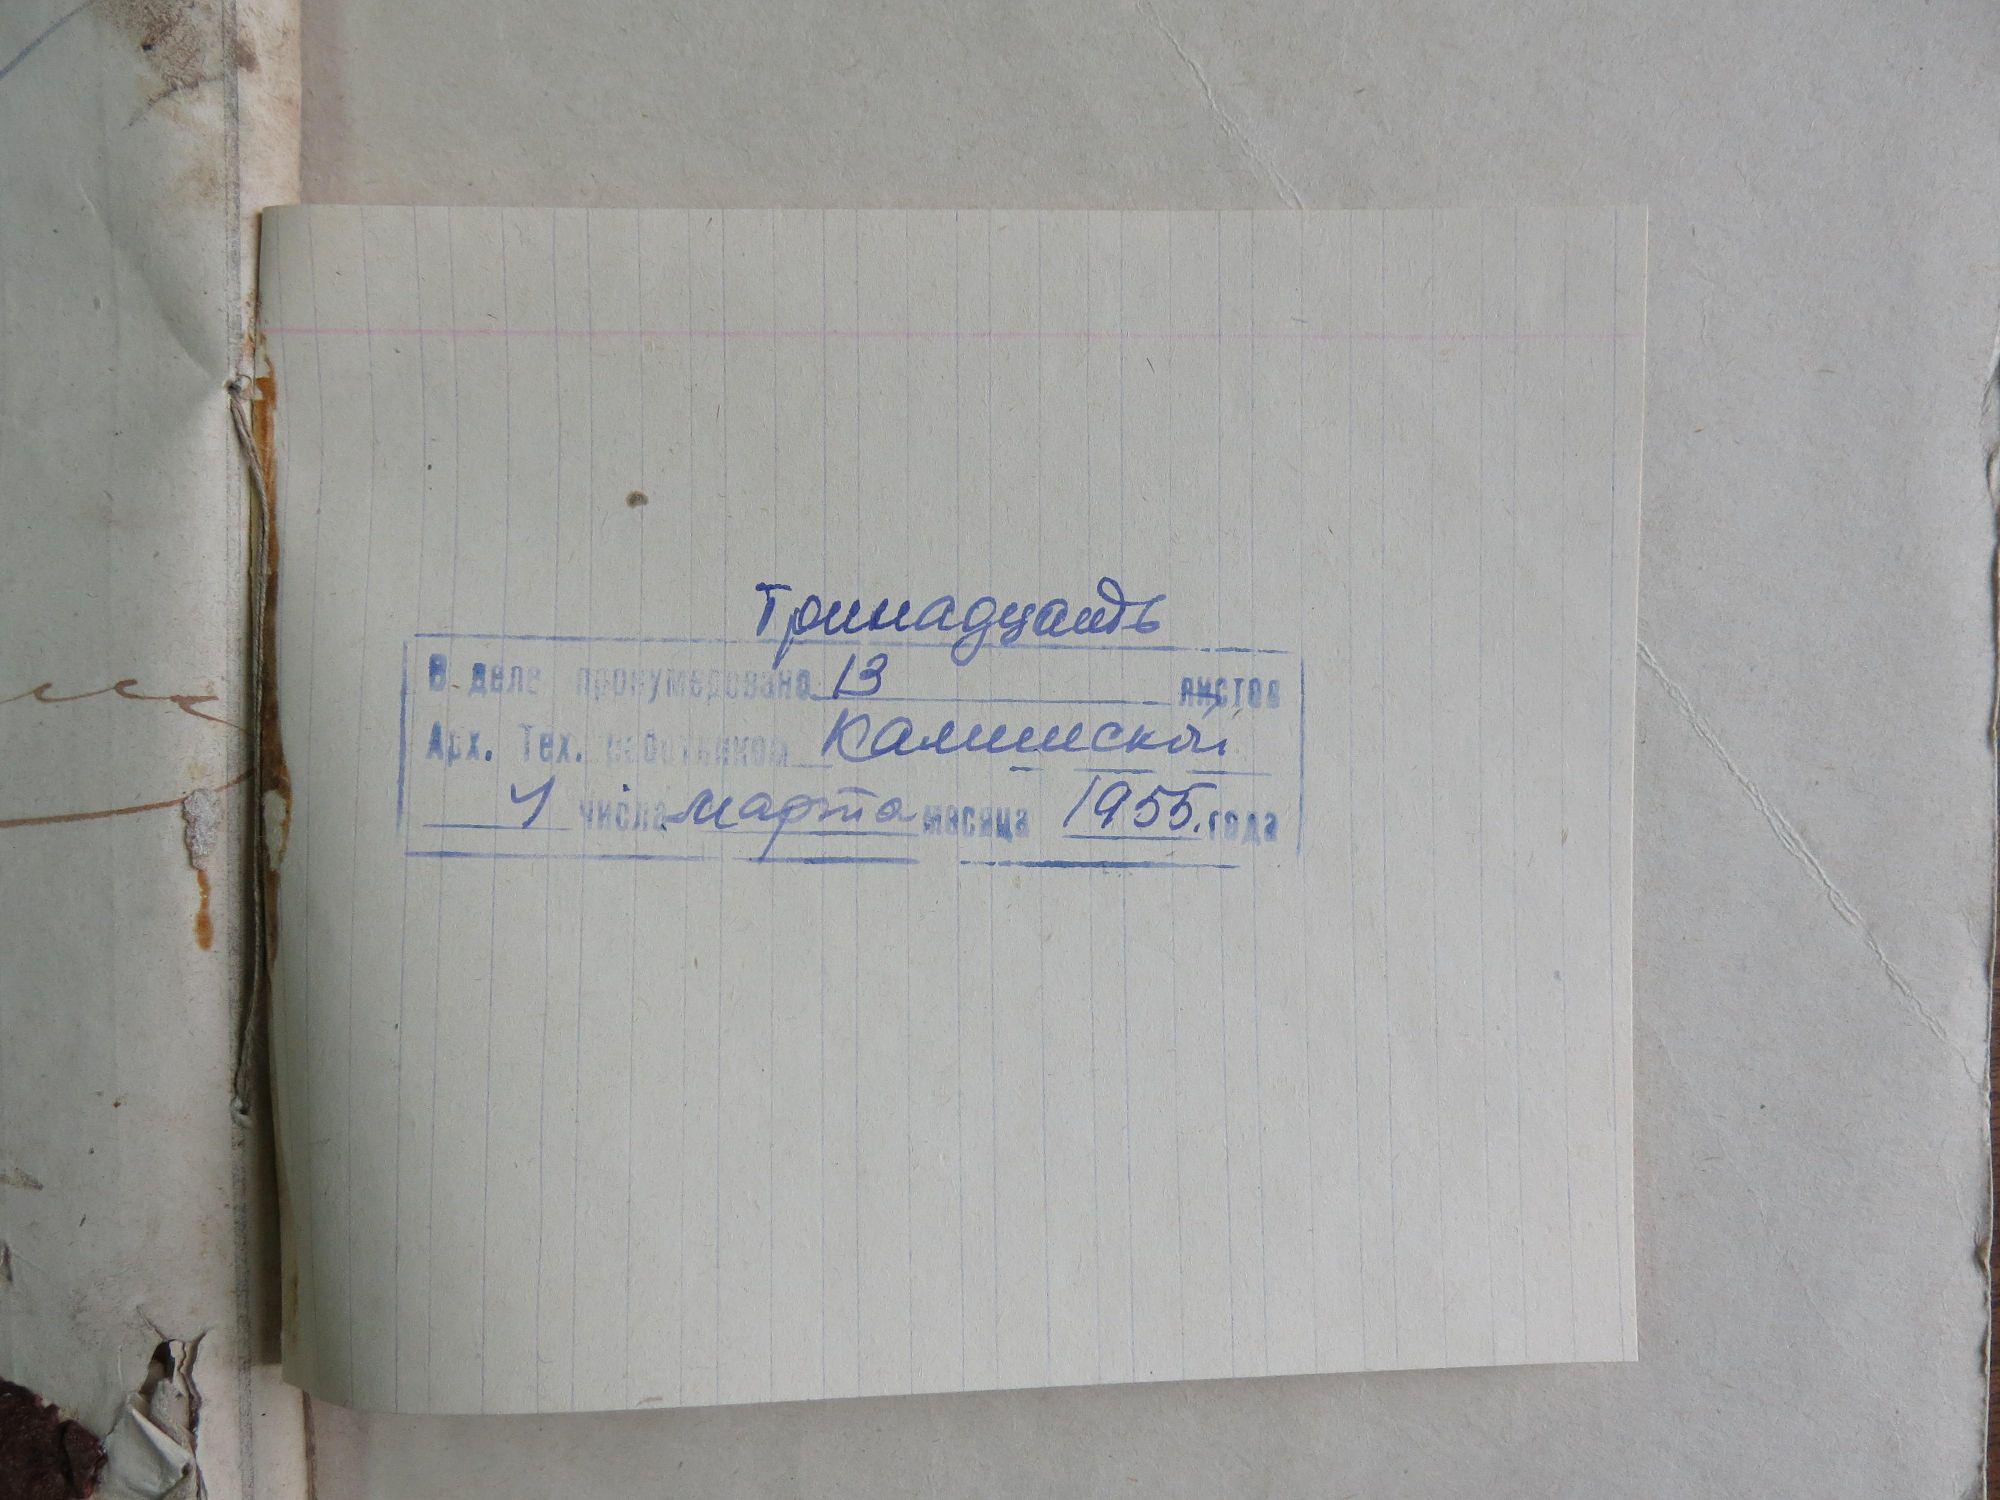 Тринадцать
В деле пронумеровано 13 листов
Арх. Тех. работником Калинской
числа марта месяца 1955 года